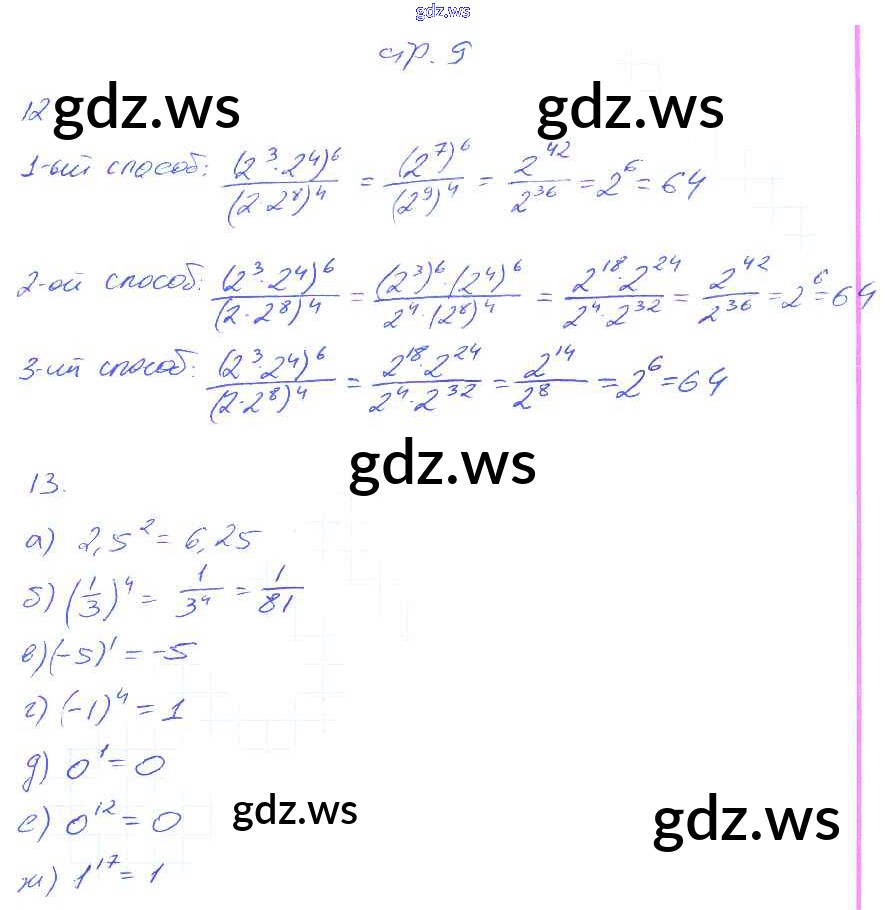 gdz.ws
стр. 9
12 gdz.ws gdz.ws
1-ый способ: (2^3·2^4)^6/(2·2^8)^4 = (2^7)^6/(2^9)^4 = 2^42/2^36 = 2^6 = 64
2-ой способ: (2^3·2^4)^6/(2·2^8)^4 = (2^3)^6·(2^4)^6/2^4·(2^8)^4 = 2^18·2^24/2^4·2^32 = 2^42/2^36 = 2^6 = 64
3-ий способ: (2^3·2^4)^6/(2·2^8)^4 = 2^18·2^24/2^4·2^32 = 2^14/2^8 = 2^6 = 64
gdz.ws
13.
а) 2,5^2 = 6,25
б) (1/3)^4 = 1/3^4 = 1/81
в) (-5)^1 = -5
г) (-1)^4 = 1
д) 0^1 = 0
е) 0^12 = 0 gdz.ws gdz.ws
ж) 1^17 = 1